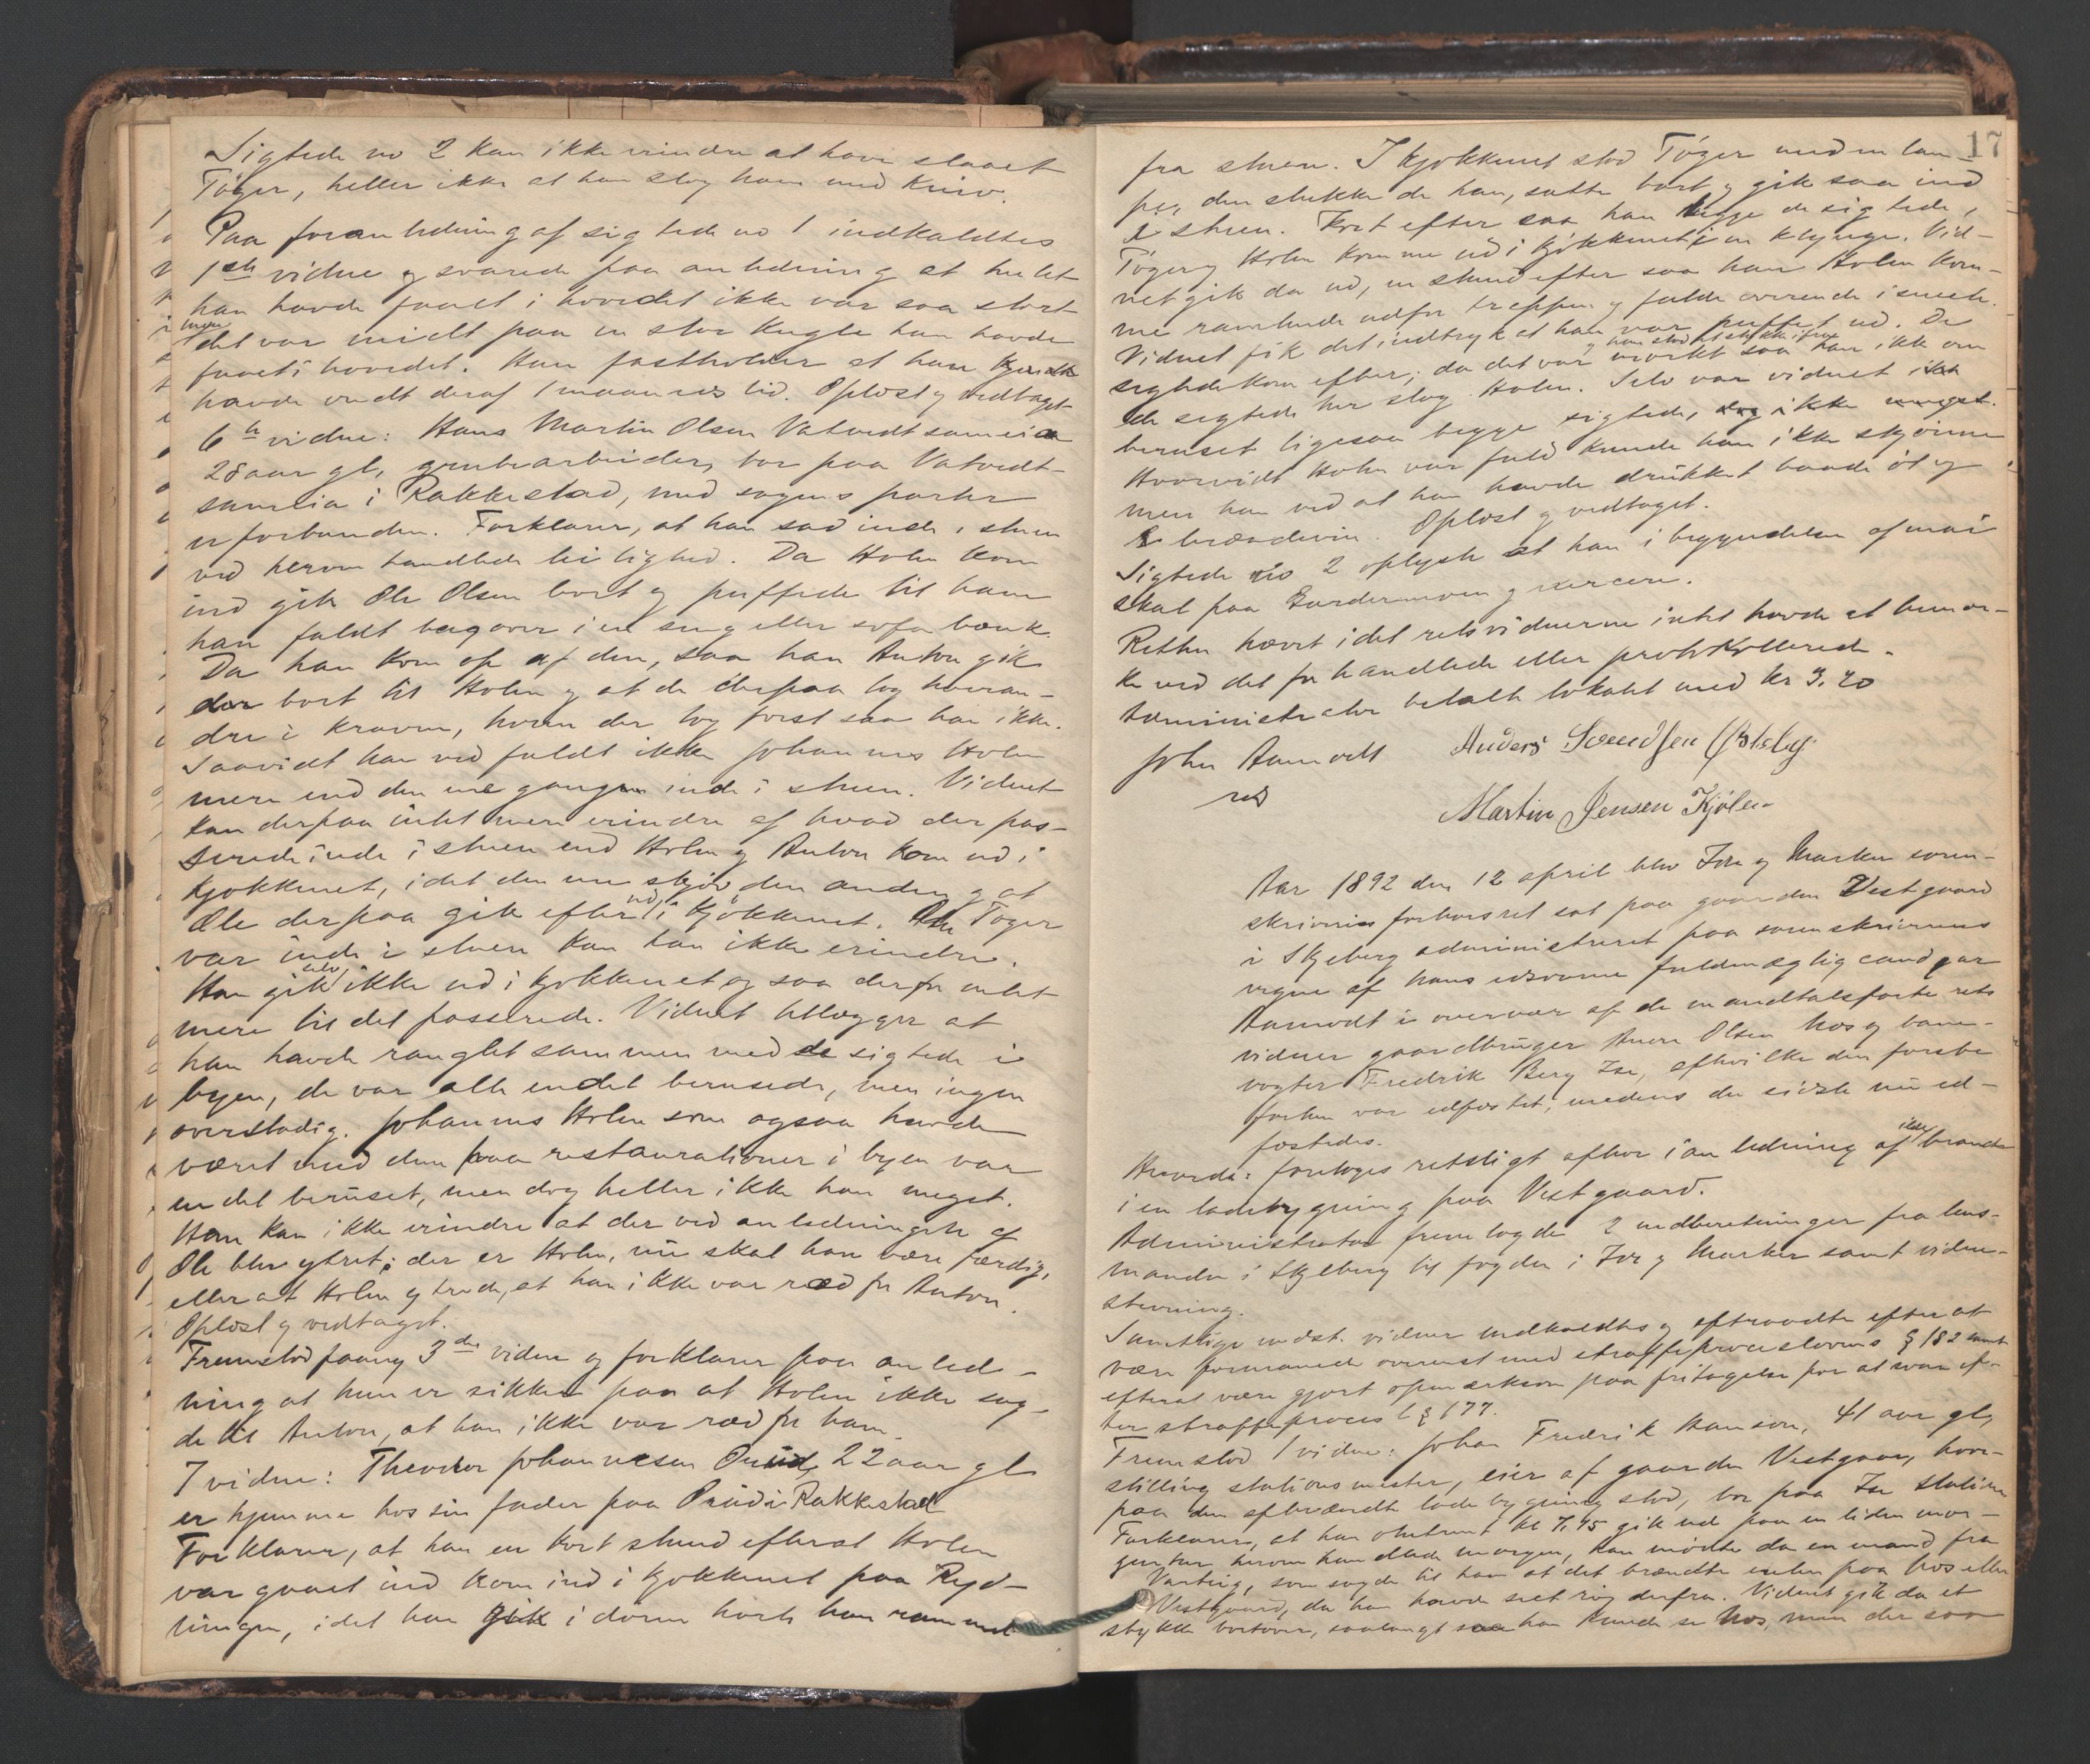 Sigtede no 2 kan ikke erindre at have slaaet
Töger, heller ikke at han slog ham med Kniv.
Paa foranledning af sigtede no 1 indkaldtes
1ste vidne og svarede paa anledning at hullet
han havde faaet i hovedet ikke var saa stort
men det var midt paa en stor kugle han havde
faaet i hovedet. Han fastholder at han kjendte
havde vondt deraf 1 maaneds tid. Oplæst og vedtaget
6te vidne: Hans Martin Olsen Vatvedtsameia
28 aar gl, grubearbeider, bor paa Vatvedt-
sameia i Rakkestad, med sagens parter
uforbunden. Forklarer, at han sad inde i stuen
ved herom handlede leilighed. Da Holm kom
ind gik Ole Olsen bort og puffede til ham
han faldt bagover i en seng eller sofabænk.
Da han kom op af den, saa han Anton gik
der bort til Holm og at de derpaa tog hveran-
dre i kraven, hvem der tog først saa han ikke.
Saavidt han ved faldt ikke Johannes Holm
mere end den ene gangen inde i stuen. Vidnet
kan derpaa intet mere erindre af hvad der pas-
serede inde i stuen end Holm og Anton kom ud i
Kjøkkenet, idet den ene skjøv den anden og at
Ole derpaa gik efter ud i Kjøkkenet. Om Töger
var inde i stuen kan han ikke erindre.
Han gik selv ikke ud i kjøkkenet og saa derfor intet
mere til det passerede. Vidnet tillægger at
han havde ranglet sammen med de sigtede i
byen, de var alle endel berusede, men ingen
overstadig. Johannes Holm som ogsaa havde
været med dem paa restaurationer i byen var
en del beruset, men dog heller ikke han meget.
Han kan ikke erindre at der ved anledningen af
Ole blev ytret; der er Holm, nu skal han være færdig,
eller at Holm ytrede, at han ikke var ræd for Anton.
Oplæst og vedtaget.
Fremstod paany 3de vidne og forklarer paa anled-
ning at hun er sikker paa at Holm ikke sag-
de til Anton, at han ikke var ræd for ham.
7 vidne: Theodor Johannesen Oriid, 22 aar gl
er hjemme hos sin fader paa Oriid i Rakkestad
Forklarer, at han en kort stund efterat Holm
var gaaet ind kom ind i kjøkkenet paa Ryd-
ningen, idet han gik i døren hørte han rammel
17
fra stuen. I kjøkkenet stod Töger med en lam-
pe, den slukkede han, satte bort og gik saa ind
i stuen. Kort efter saa han begge de sigtede,
Töger og Holm komme ud i kjøkkenet i en klynge. Vid-
net gik da ud, en stund efter saa han Holm kom-
me ramlende udfor trappen og falde overende i sneen.
Vidnet fik det indtryk at han var puffet ud. De
sigtede kom efter; da det var mørkt og han stod et stykke ifra saa han ikke om
de sigtede her slog Holm. Selv var vidnet ikke
beruset ligesaa begge sigtede, dog ikke meget.
Hvorvidt Holm var fuld kunde han ikke skjønne
men han ved at han havde drukket baade øl og
brændevin. Oplæst og vedtaget.
Sigtede no 2 oplyste at han i begyndelsen af mai
skal paa Gardermoen og exercere.
Retten hævet idet retsvidnerne intet havde at bemær-
ke ved det forhandlede eller protokollerede.
Administrator betalte lokalet med kr 3.20
John Aamodt Anders Svendsen Østeby
Martin Jensen Kjølen
Aar 1892 den 12 april blev Ide og Marker soren-
skriveris forhørsret sat paa gaarden Vestgaard
i Skjeberg administreret paa sorenskriverens
vegne af hans edsvorne fuldmægtig cand jur
Aamodt i overvær af de mandtalsførte rets
vidner gaardbruger Anders Olsen Hos og bane-
vogter Fredrik Berg Ise, af hvilke den første
forhen var edfæstet, medens den sidste nu ed-
fæstedes.
Hvorda: foretoges retsligt afhør i anledning af ildebrande
i en ladebygning paa Vestgaard.
Administrator fremlagde 2 indberetninger fra lens-
manden i Skjeberg til fogden i Ide og Marker samt vidne-
stevning.
Samtlige indst. vidner indkaldtes og aftraadte efter at
være formanede overenst med straffeproceslovens § 182 samt
efterat være gjort opmærksom paa fritagelse for at svare ef-
ter straffeproces l § 177.
Fremstod 1 vidne: Johan Fredrik Hanson, 41 aar gl,
stilling stationsmester, eier af gaarden Vestgaar, hvor-
paa den afbrændte ladebygning stod, bor paa Ise station
Forklarer, at han omtrent kl 7,45 gik ud paa en liden mor-
gentur herom handlede morgen, han mødte da en mand fra
Varteig, som sagde til ham at det brændte enten paa Hos eller
Vestgaard, da han havde seet røg derfra. Vidnet gik da et
stykke bortover, saalangt saa han kunde se Hos, men der saa